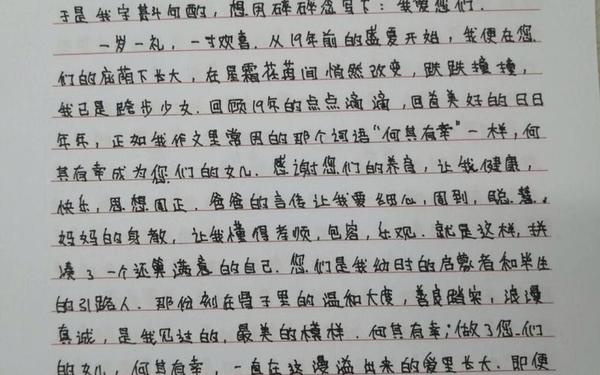 于是我字斟句酌，想用碎碎念写下：我爱您们.
一岁一礼，一寸欢喜.从19年前的盛夏开始，我便在您
们的庇荫下长大，在星霜荏苒间悄然改变，跌跌撞撞，
我已是踏步少女.回顾19年的点点滴滴，回首美好的日日
年年，正如我作文里常用的那个词语“何其有幸”一样，何
其有幸成为您们的女儿.感谢您们的养育，让我健康，
快乐，思想周正.爸爸的言传让我爱细心，周到，聪慧.
妈妈的身教，让我懂得孝顺，包容，乐观.就是这样，拼
凑了一个还算满意的自己.您们是我幼时的启蒙者和半生
的引路人.那份刻在骨子里的温和大度，善良踏实，浪漫
真诚，是我见过的，最美的模样.何其有幸；做了您们
的女儿，何其有幸，一直在这漫溢出来的爱里长大.即便